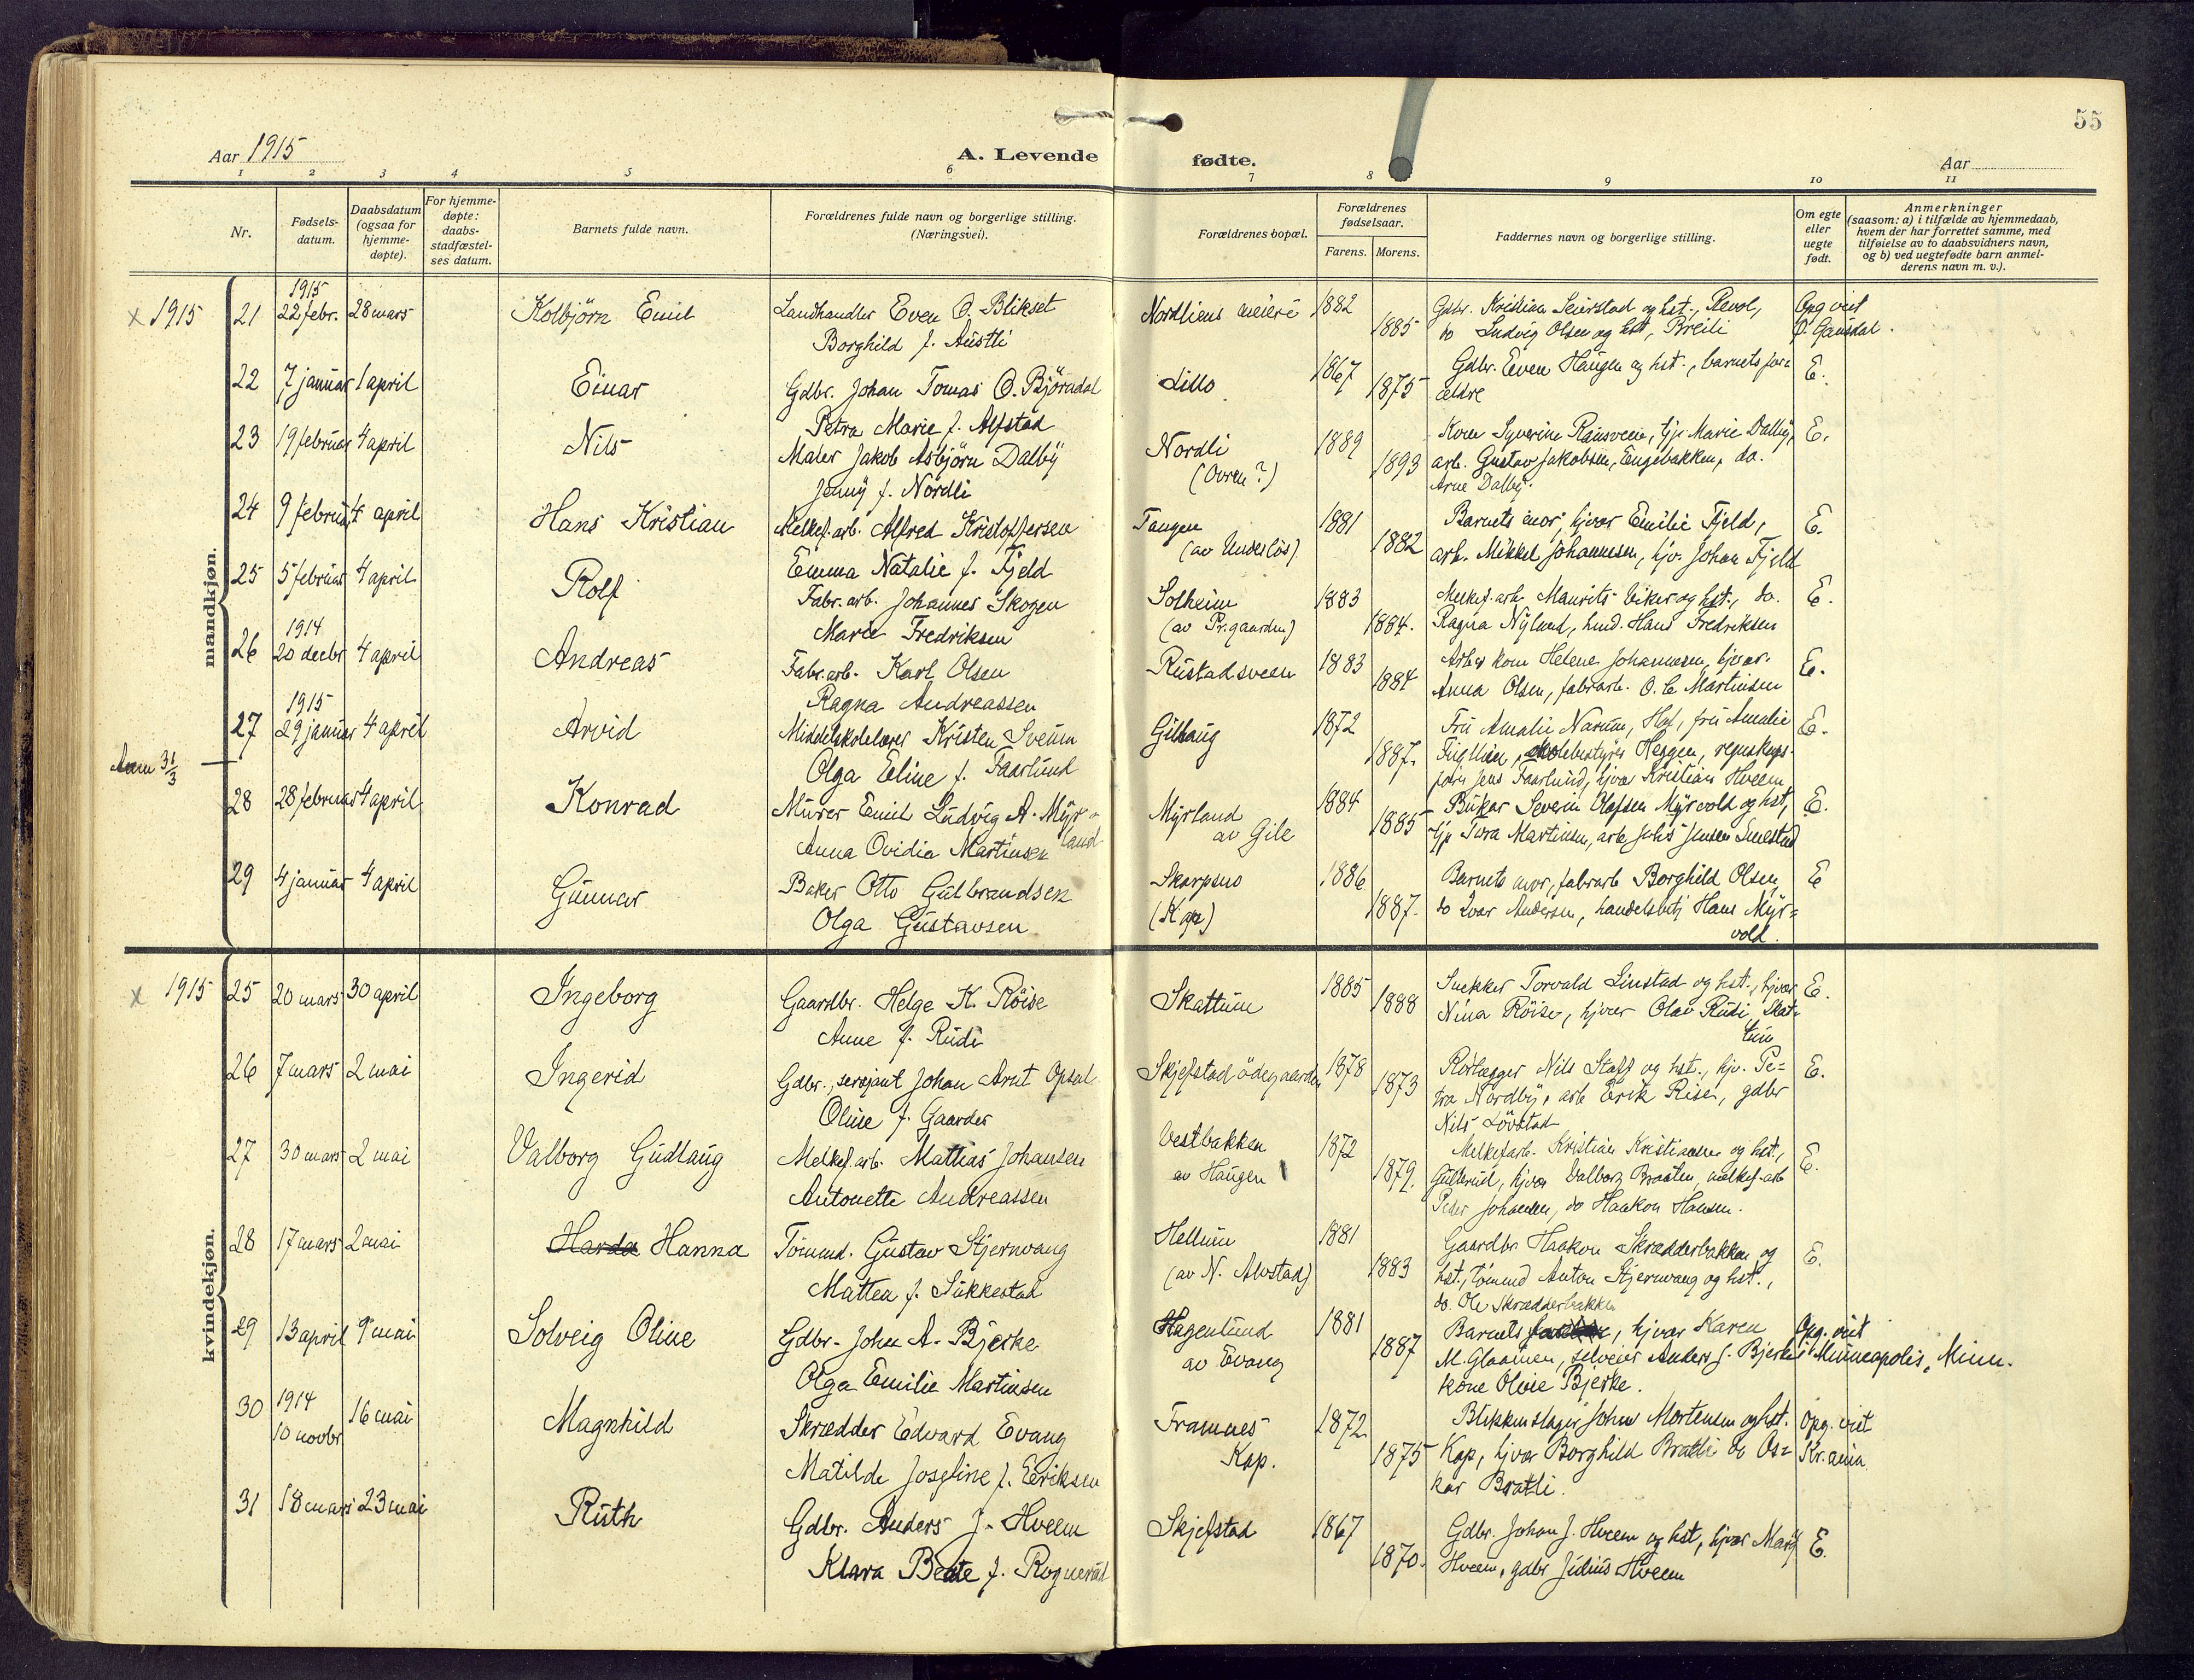 55
Aar 1915
A. Levende fødte.
Aar
1 2 3 4 5 6 7 8 9 10 11
Nr.
Fødsels-
datum.
Daabsdatum
(ogsaa for
hjemme-
døpte).
For hjemme-
døpte:
daabs-
stadfæstel-
ses datum.
Barnets fulde navn.
Forældrenes fulde navn og borgerlige stilling.
(Næringsvei).
Forældrenes bopæl.
Forældrenes
fødselsaar.
Farens. Morens.
Faddernes navn og borgerlige stilling.
Om egte
eller
uegte
født.
Anmerkninger
(saasom: a) i tilfælde av hjemmedaab,
hvem der har forrettet samme, med
tilføielse av to daabsvidners navn,
og b) ved uegtefødte barn anmel-
derens navn m. v.).
mandkjøn.
x 1915 21 1915 22 febr. 28 mars Kolbjörn Emil Landhandler Even O. Blikset Nordliens meieri 1882 Gdbr. Kristian Seierstad og hst.,
Borghild f. Austli 1885 do Ludvig Olsen og hst, Breili
Opg. vist
Ö. Gausdal.
22 7 januar 1 april Einar Gdbr. Johan Tomas O. Björndal Lillo 1867 Gdbr. Even Haugen og hst., barnets for= E.
Petra Marie f. Alfstad 1875 ældre
23 19 februar 4 april Nils Maler Jakob Asbjörn Dalby Nordli 1889 Kone Syverine Rausveen, tjp Marie Dalby, E.
Jenny f. Nordli (Ovren?) 1893 arb. Gustav Jakobsen, Engebakken, do.
Arne Dalby.
24 9 februar 4 april Hans Kristian Melkef.arb. Alfred Kristoffersen Tangen 1881 Barnets mor, hjvær Emilie Fjeld, E.
Emma Natalie f. Fjeld (av Underlös) 1882 arb. Mikkel Johannesen, hjv. Johan Fjeld
25 5 februar 4 april Rolf Fabr.arb. Johannes Skogen Solheim 1883 Melkef.arb Maurits Viker og hst., do. E.
Marie Fredriksen (av Pr.gaarden) 1884. Ragna Nylund, Hans Fredriksen
26 1914 20 decbr 4 april Andreas Fabr.arb. Karl Olsen Rustadsveen 1883 kone Helene Johannesen, hjvær. E.
Ragna Andreassen 1884 Anna Olsen, fabrarb. O. Martinsen
27 1915 29 januar 4 april Arvid Middelskolelærer Kristen Sveum Gilhaug 1872 Fru Amalie Narum, Hof, fru Amalie E.
Olga Eline f. Faarlund 1887. skolebestyrer Heggen, regnskaps-
Jens Faarlund, hjvær Kristian Hveem
31/3
28 28 februar 4 april Konrad Murer Emil Ludvig A. Myr= Myrland 1884 Severin Olafsen Myrvold og hst, E.
land
Anna Ovidia Martinsen av Gile 1885 tjp Tora Martinsen, arb Johs Jensen Smestad
29 4 januar 4 april Gunnar Baker Otto Gulbrandsen Skarpsno 1886 Barnets mor, fabrarb Borghild Olsen, E
Olga Gustavsen (Kap) 1887. do Ivar Andersen, handelsbetj Hans Myr=
vold.
kvindekjøn.
x 1915 25 20 mars 30 april Ingeborg Gaardbr. Helge K. Röise Skattum 1885 Snekker Torvald Linstad og hst., hjvær E.
Anne f. Rudi 1888 Nina Röise, hjvær Olav Rudi, Skat-
tum
26 7 mars 2 mai Ingerid Gdbr., sersjant Johan Arnt Opsal Skjefstad ödegaarden 1878 Rörlægger Nils Staff og hst., hjv. Pe= E.
Oline f. Gaarder 1873 tra Nordby, arb Erik Risen, gdbr
Nils Lövstad
27 30 mars 2 mai Valborg Gudlaug Melkef.arb. Mattias Johansen Vestbakken 1872 Melkefarb. Kristian Kristiansen og hst., E.
Antonette Andreassen av Haugen 1879. Gulterud, hjvær Valborg Braaten, melkef.arb
Peder Johansen, do Haakon Hansen.
28 17 mars 2 mai Harda Hanna Tömmd. Gustav Stjernvang Hellum 1881 Gaardbr Haakon Skrædderbakken og E.
Mattea f. Sukkestad (av N. Alvstad) 1883 hst., tömmd Anton Stjernvang og hst.,
do. Ole Skrædderbakken
29 13 april 9 mai Solveig Oline Gdbr. John A. Bjerke Hagenlund 1881 Barnets, hjvær Karen Opg. vist
Olga Emilie Martinsen av Evang 1887 M. Glaamen, selveier Anders J. Bjerke i Minneapolis, Minn.
kone Oline Bjerke.
30 1914 10 novbr 16 mai Magnhild Skrædder Edvard Evang Framnes 1872 Blikkenslager John Mortensen og hst. Opg. vist
Matilde Josefine f. Eeriksen Kap. 1875 Kap, hjvær Borghild Bratli do Os= Kr.ania
kar Bratli.
31 18 mars 23 mai Ruth Gdbr. Anders J. Hveem Skjefstad 1867 Gdbr. Johan J. Hveem og hst, hjvær Mary E.
Klara Beate f. Rognerud 1870. Hveem, gdbr Julius Hveem